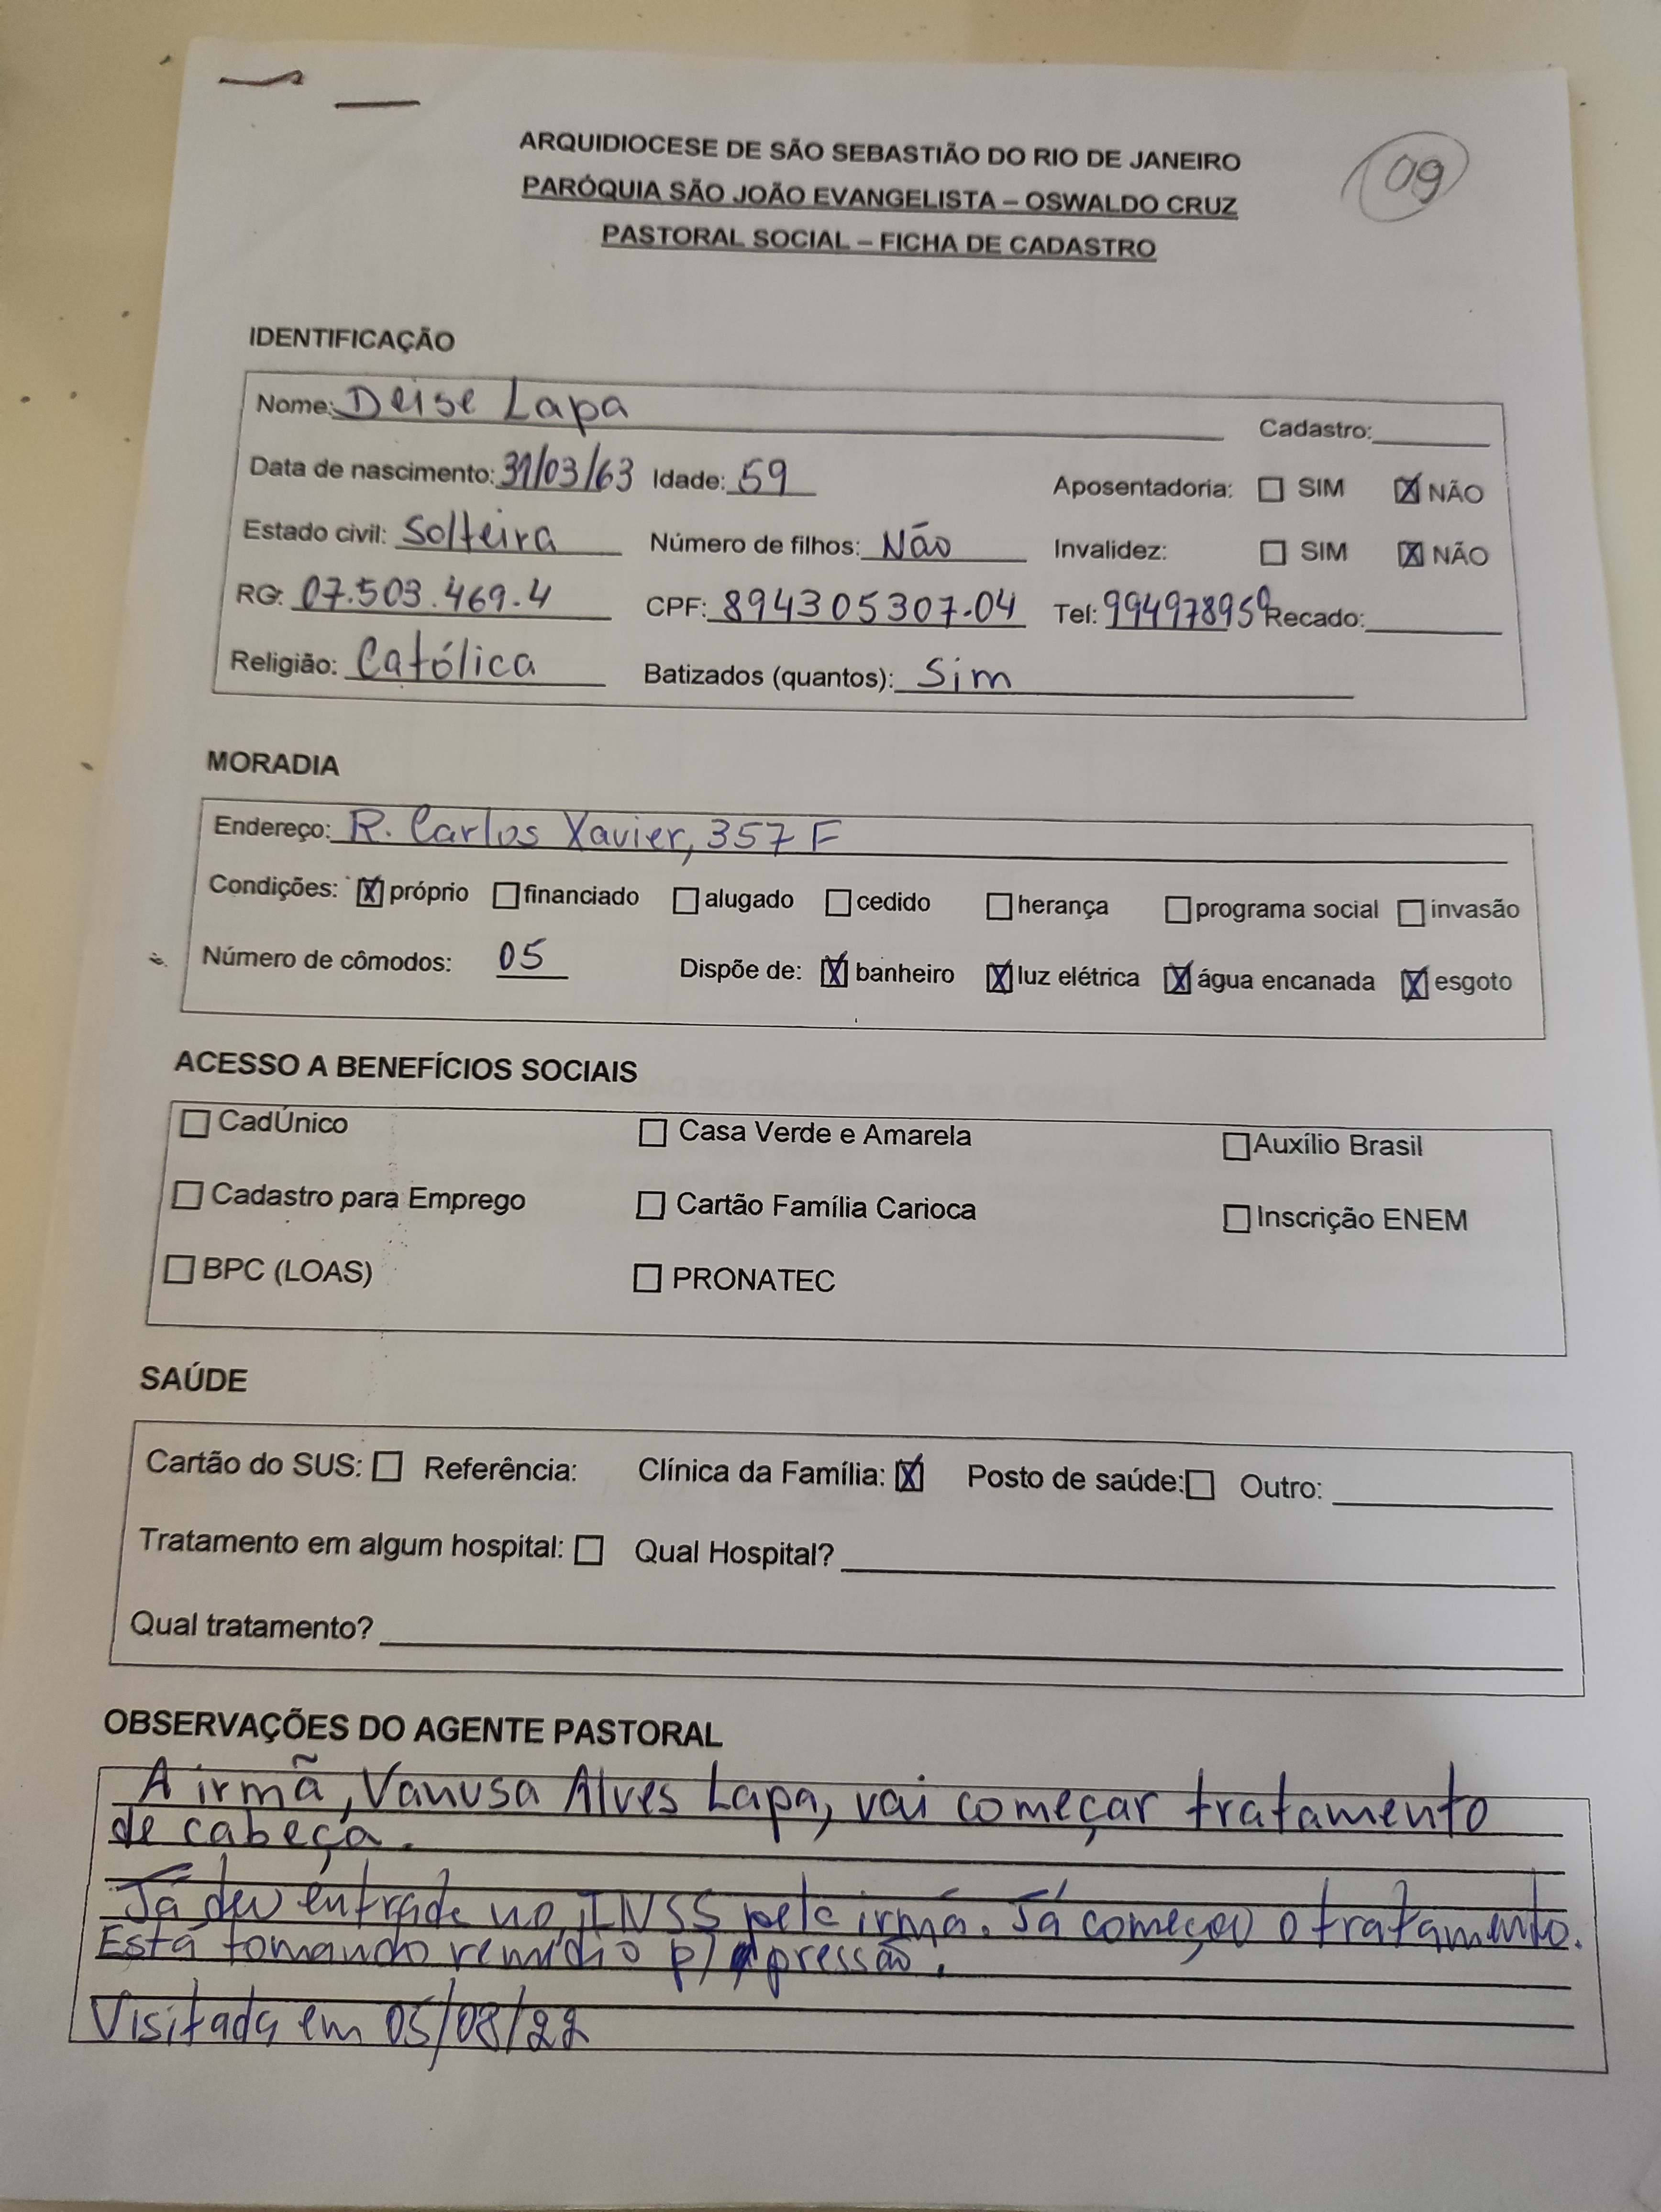 09
ARQUIDIOCESE DE SÃO SEBASTIÃO DO RIO DE JANEIRO
PARÓQUIA SÃO JOÃO EVANGELISTA – OSWALDO CRUZ
PASTORAL SOCIAL – FICHA DE CADASTRO
IDENTIFICAÇÃO
Nome: Deise Lapa Cadastro:
Data de nascimento: 31/03/63 Idade: 59 Aposentadoria: ☐ SIM ☒ NÃO
Estado civil: Solteira Número de filhos: Não Invalidez: ☐ SIM ☒ NÃO
RG: 07.503.469.4 CPF: 894305307-04 Tel: 994978959 Recado:
Religião: Católica Batizados (quantos): Sim
MORADIA
Endereço: R. Carlos Xavier, 357 F
Condições: ☒ próprio ☐ financiado ☐ alugado ☐ cedido ☐ herança ☐ programa social ☐ invasão
Número de cômodos: 05 Dispõe de: ☒ banheiro ☒ luz elétrica ☒ água encanada ☒ esgoto
ACESSO A BENEFÍCIOS SOCIAIS
☐ CadÚnico ☐ Casa Verde e Amarela ☐ Auxílio Brasil
☐ Cadastro para Emprego ☐ Cartão Família Carioca ☐ Inscrição ENEM
☐ BPC (LOAS) ☐ PRONATEC
SAÚDE
Cartão do SUS: ☐ Referência: Clínica da Família: ☒ Posto de saúde: ☐ Outro:
Tratamento em algum hospital: ☐ Qual Hospital?
Qual tratamento?
OBSERVAÇÕES DO AGENTE PASTORAL
A irmã, Vanusa Alves Lapa, vai começar tratamento
de cabeça.
Já deu entrada no INSS pela irmã. Já começou o tratamento.
Está tomando remédio p/ pressão.
Visitada em 05/08/22